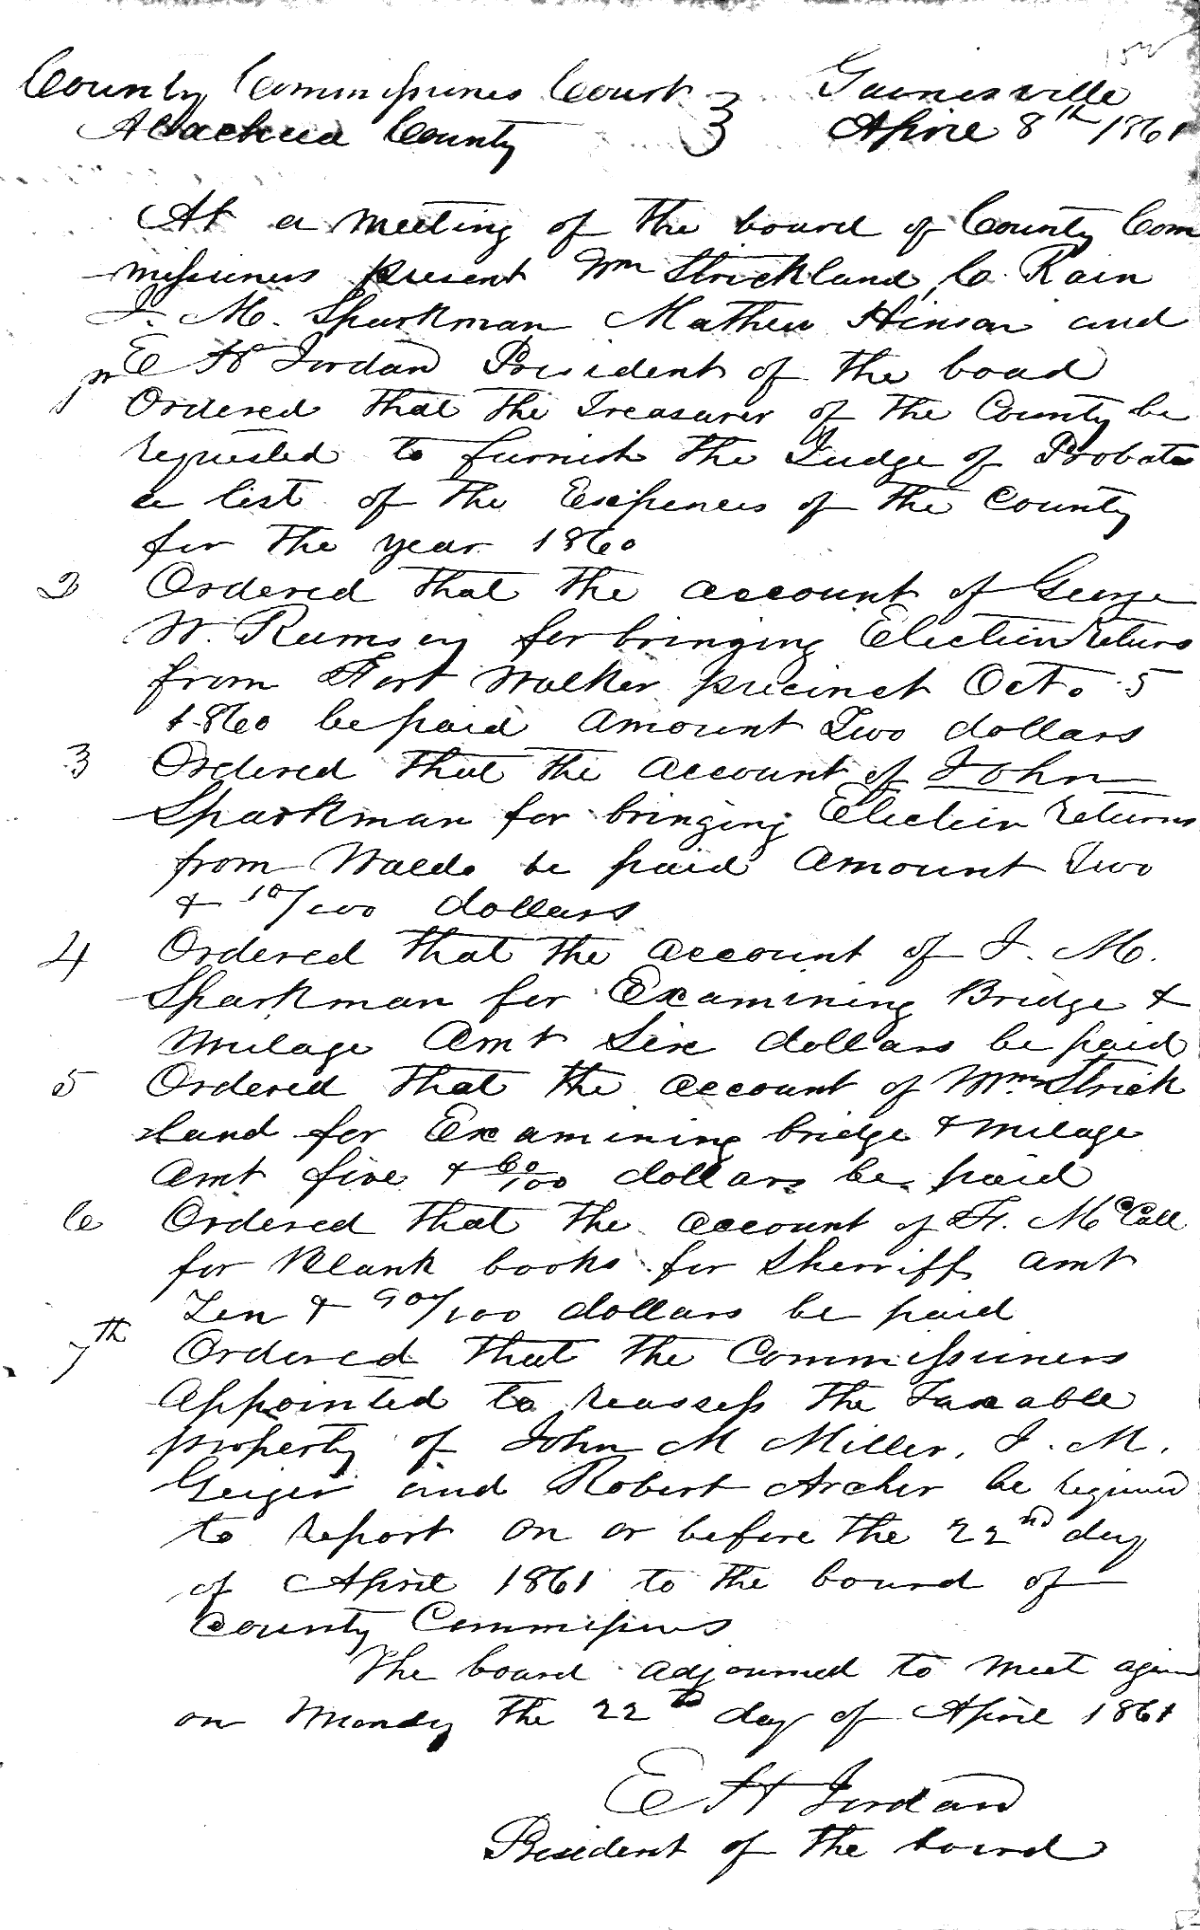 County Commissiones Court } Gainesville
Alachua County April 8th 1861
At a meeting of the board of County Com
missiners present Wm Strickland, C. Rain
J. M. Sparkman Mathew Hinson and
E H Jordan President of the boad
1st Ordered that the Treasurer of the County be
requested to furnish the Judge of Probate
a list of the Expences of the County
for the year 1860
2 Ordered that the account of George
W. Rumsey for bringing Election returns
from Fort Walker precinct Oct. 5
1860 be paid amount Two dollars
3 Ordered that the account of John
Sparkman for bringing Election returns
from Waldo be paid amount Two
& 10/100 dollars
4 Ordered that the account of J. M.
Sparkman for Examining Bridge &
Milage Amt Six dollars be paid
5 Ordered that the account of Wm Strick
land for Examining bridge & milage
amt five & 60/100 dollars be paid
6 Ordered that the account of F. McCall
for Blank books for Sherriff amt
Ten & 90/100 dollars be paid
7th Ordered that the Commissiners
appointed to reassess the Taxable
property of John M Miller, J. M.
Geiger and Robert Archer be required
to report on or before the 22nd day
of April 1861 to the board of
County Commissiners
The board adjourned to meet again
on Monday the 22nd day of April 1861
E H Jordan
President of the board